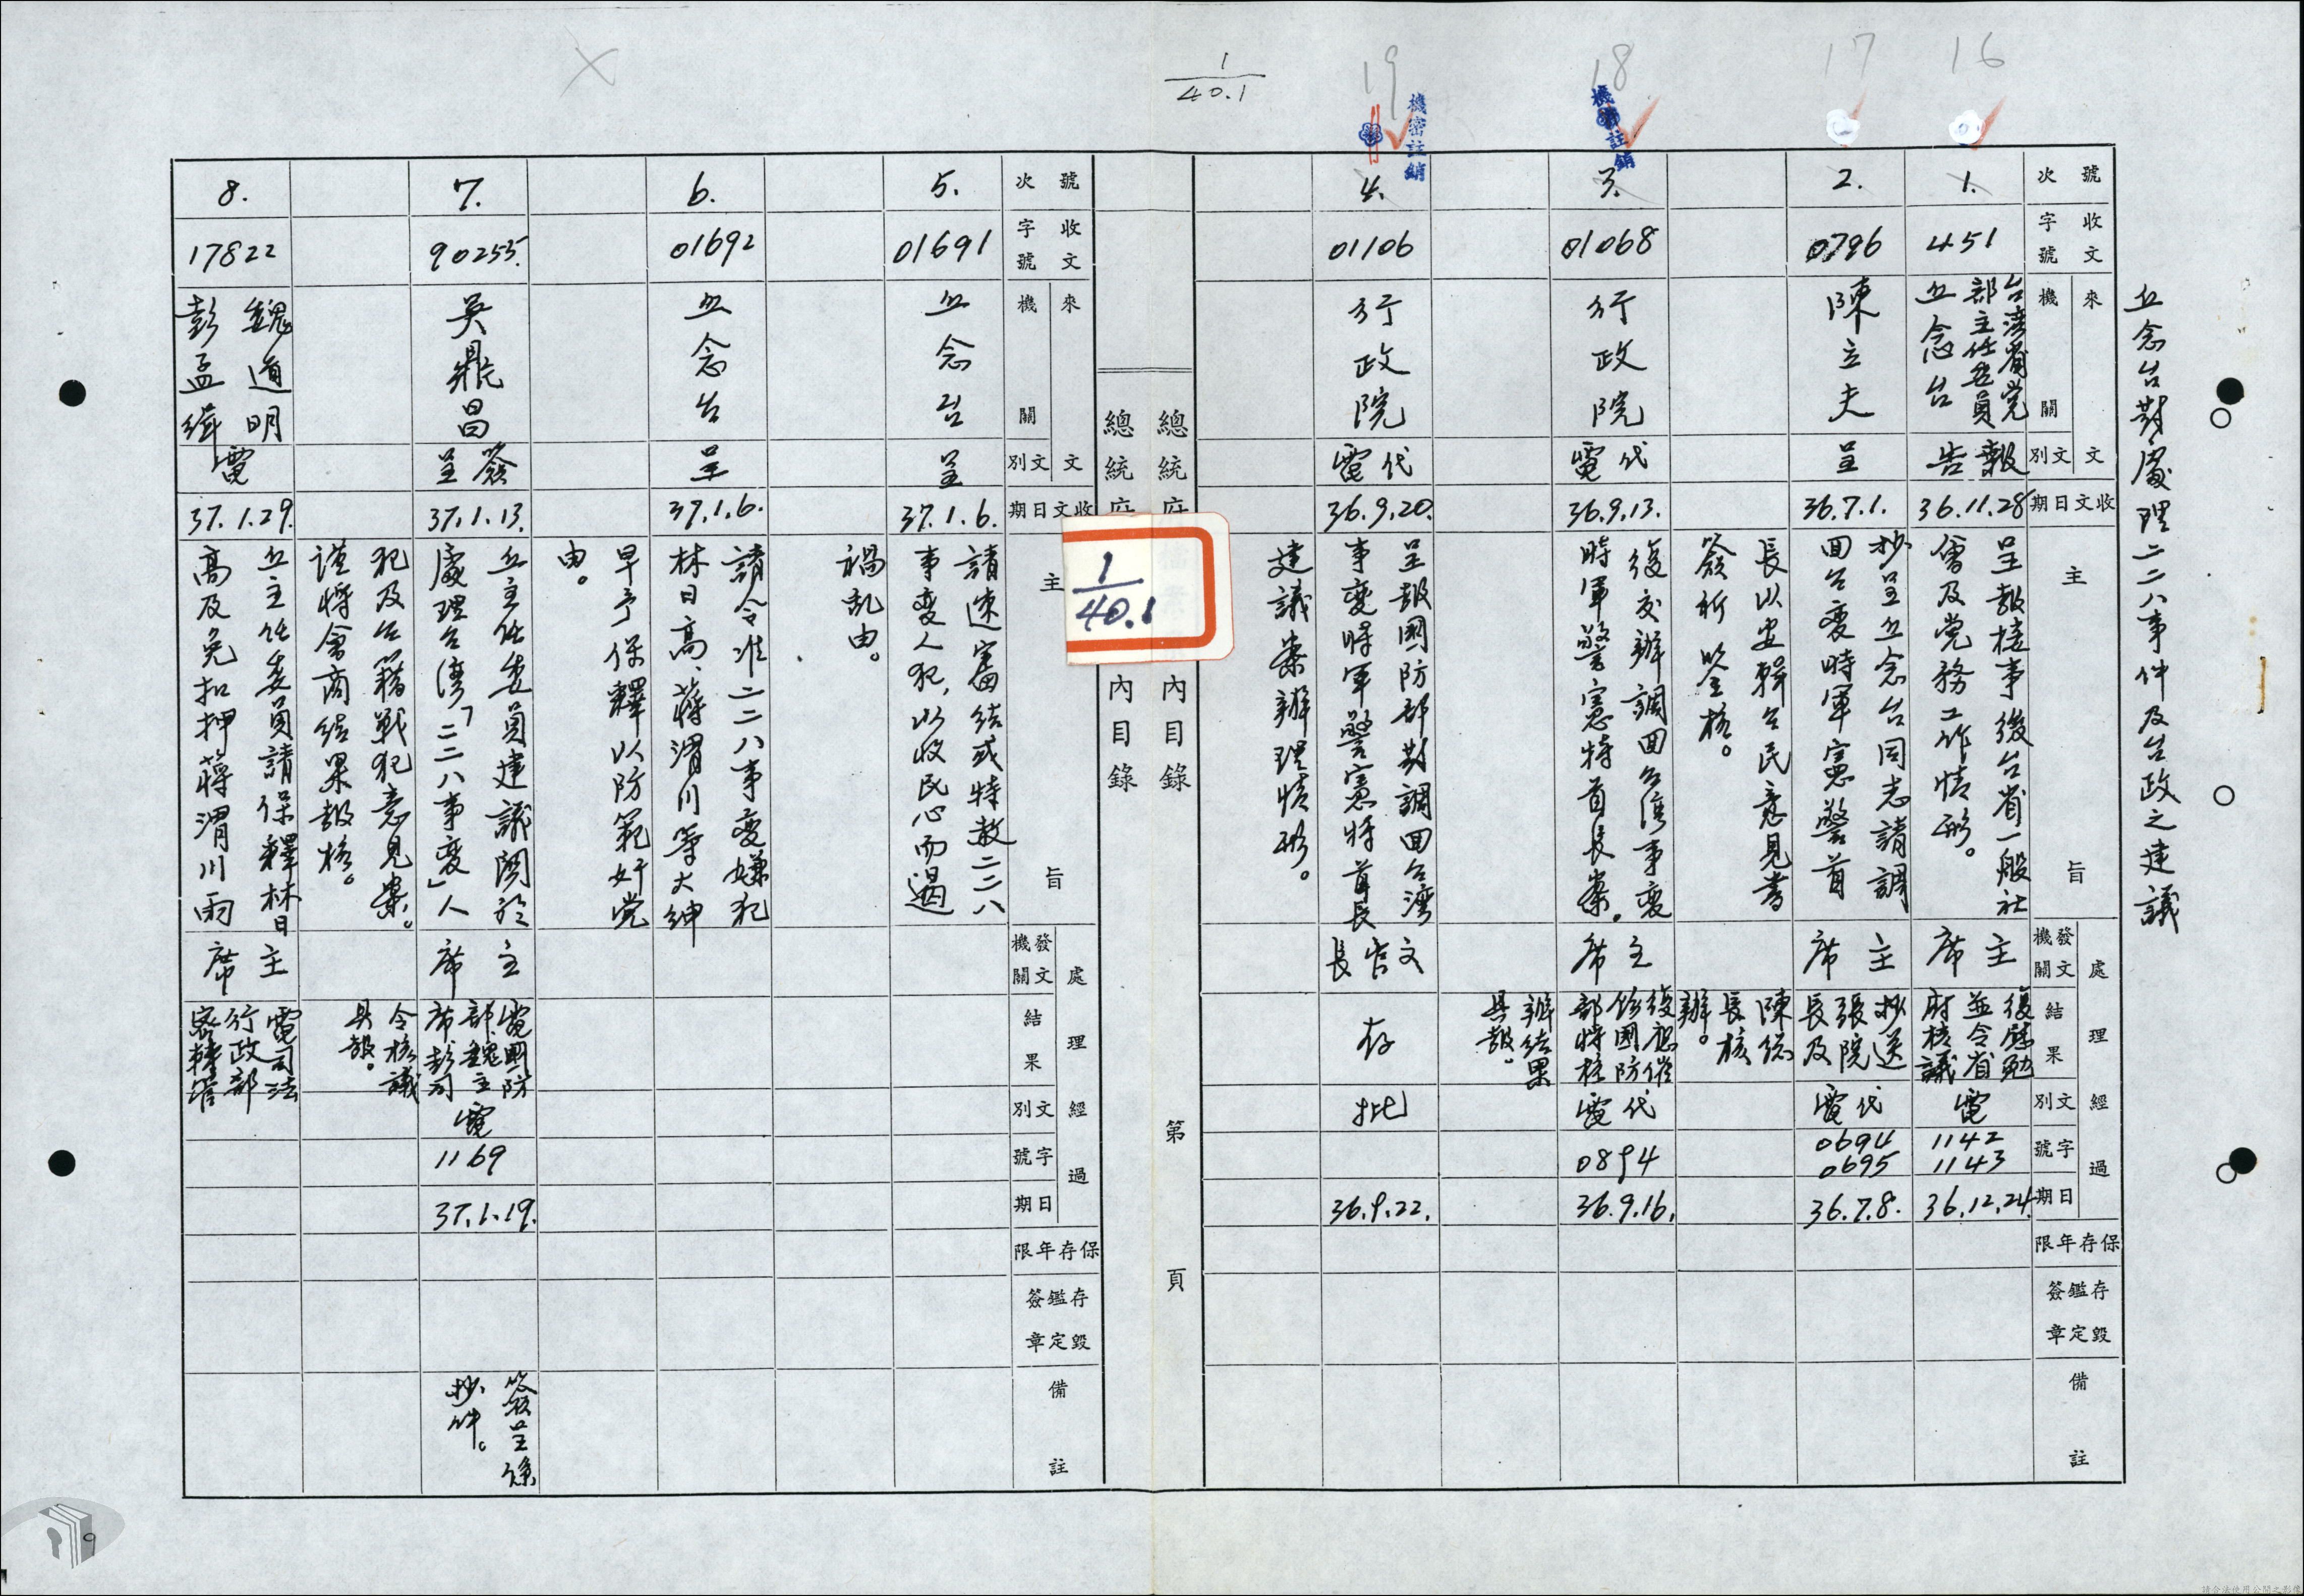 丘念台對處理二二八事件及台政之建議
1
40.1
16
17
18
19
機密註銷
機密註銷
號次
收文字號
來文機關
文別
收文日期
主旨
處理經過
發文機關
結果
文別
字號
日期
保存年限
存毀鑑定簽章
備註
1.
451
台灣省党
部主任委員
丘念台
報告
36.11.28
呈報接事後台省一般社
會及党務工作情形。
主席
復慰勉
並令省
府核議
電
1142
1143
36.12.24.
2.
0796
陳立夫
呈
36.7.1.
抄呈丘念台同志請調
回台變時軍憲警首
長以安輯台民意見書
簽祈鑒核。
主席
抄送
張院
長及
陳總
長核
辦。
代電
0694
0695
36.7.8.
3.
01068
行政院
代電
36.9.13.
復交辦調回台灣事變
時軍警憲特首長案。
主席
復慰催
飭國防
部特核
辦結果
具報。
代電
0894
36.9.16.
4.
01106
行政院
代電
36.9.20.
呈報國防部對調回台灣
事變時軍警憲特首長
建議案辦理情形。
文官長
存
批
36.9.22.
總統府
內目錄
第
頁
1
40.1
總統府
內目錄
號次
收文字號
來文機關
文別
收文日期
主旨
處理經過
發文機關
結果
文別
字號
日期
保存年限
存毀鑑定簽章
備註
5.
01691
丘念台
呈
37.1.6.
請速審結或特赦二二八
事變人犯,以收民心而遏
禍乱由。
6.
01692
丘念台
呈
37.1.6.
請令准二二八事變嫌犯
林日高、蔣渭川等大紳
早予保釋以防範奸党
由。
7.
90255.
吳鼎昌
簽呈
37.1.13.
丘主任委員建議關於
處理台灣「二二八事變」人
犯及台籍戰犯意見案。
謹將會商結果報核。
主席
電國防
部魏主
席彭司
令核議
具報。
電
1169
37.1.19.
簽呈係
抄件。
8.
17822
魏道明
彭孟緝
電
37.1.29.
丘主任委員請保釋林日
高及免扣押蔣渭川兩
主席
電司法
行政部
9